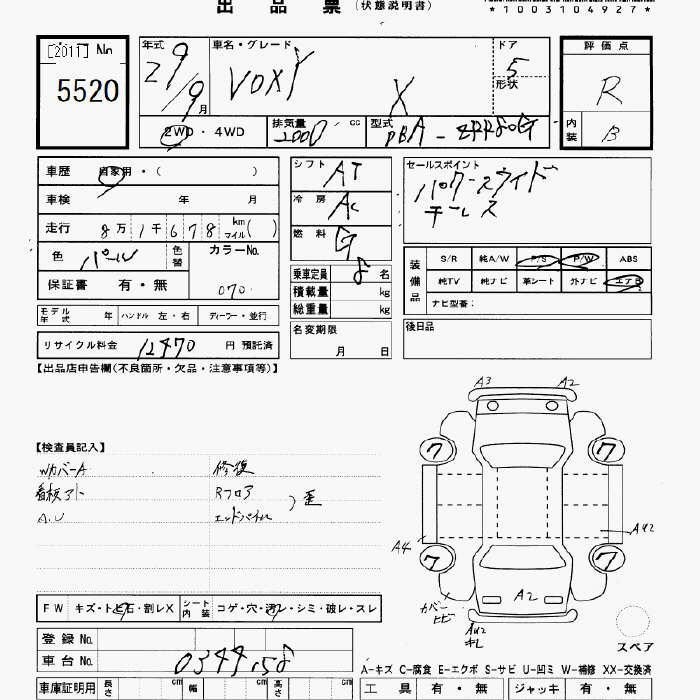 出品票 (状態説明書)
*1003104927*
[2011] No
5520
年式 21/9 月
車名・グレード VOXY X
ドア 5
形状
評価点 R
内装 B
2WD・4WD
排気量 2000 cc
型式 DBA-ZRR80G
車歴 自家用・( )
車検 年 月
走行 8万1千678 km マイル( )
色 パール 色替
カラーNo. 070
保証書 有・無
モデル年式 年 ハンドル 左・右 ディーラー・並行
リサイクル料金 12470 円 預託済
シフト AT
冷房 AC
燃料 G
乗車定員 8 名
積載量 kg
総重量 kg
名変期限 月 日
セールスポイント
パワースライド
キーレス
装備品
S/R 純A/W P/S P/W ABS
純TV 純ナビ 革シート 外ナビ エアB
ナビ型番:
後日品
【出品店申告欄(不良箇所・欠品・注意事項等)】
【検査員記入】
Wカバー A 修復
看板アト Rフロア
A.U エンドパネル 歪
FW キズ・トビ石・割レX シート内装 コゲ・穴・汚レ・シミ・破レ・スレ
A3 A2
7 7
A4 AU2
7 7
A2
カバー ヒビ
AU2 キレ
スペア
登録No.
車台No. 0344158
A-キズ C-腐食 E-エクボ S-サビ U-凹ミ W-補修 XX-交換済
車庫証明用 長さ cm 幅 cm 高さ cm
工具 有・無 ジャッキ 有・無